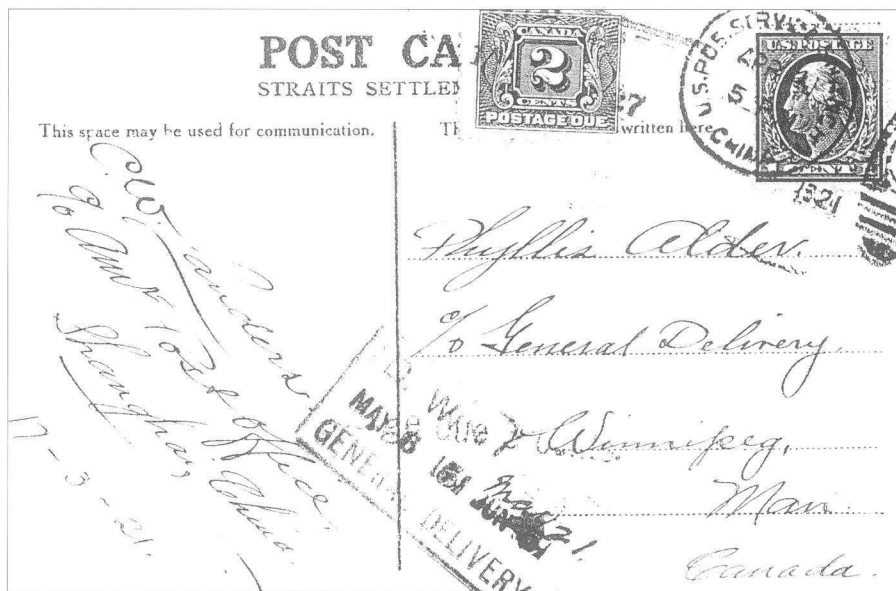 POST CA
STRAITS SETTLEM
This space may be used for communication.
Th
written here
CANADA
2
CENTS
POSTAGE DUE
27
U.S. POS. SERVICE
APR
5
CHINA
1921
U.S. POSTAGE
CENTS
C.W. Landers
c/o Am. Post Office
Shanghai
China.
17-3-21.
Phyllis Alder.
c/o General Delivery.
Winnipeg,
Man.
Canada.
MAY
GENERAL DELIVERY
JUN